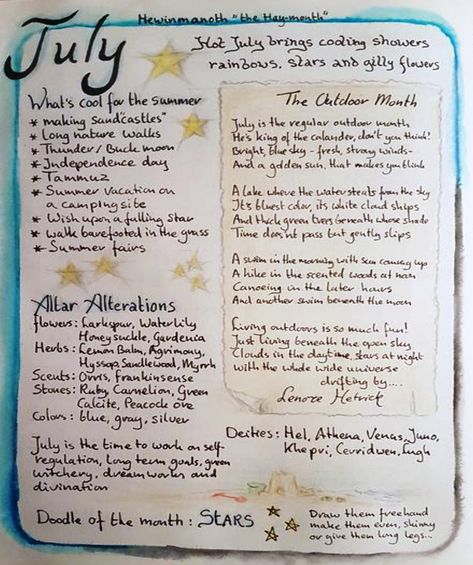 July
Hewinmanoth "the Hay-month"
Hot July brings cooling showers
rainbows, stars and gilly flowers
What's cool for the summer
* making sand "castles"
* long nature walks
* Thunder / Buck moon
* Independence day
* Tammuz
* Summer vacation on
a camping site
* Wish upon a falling star
* walk barefooted in the grass
* Summer fairs
Altar Alterations
flowers: Larkspur, Water Lily
Honeysuckle, Gardenia
Herbs: Lemon Balm, Agrimony,
Hyssop, Sandlewood, Myrrh
Scents: Orris, Frankinsense
Stones: Ruby, Carnelion, Green
Calcite, Peacock Ore
Colors: blue, gray, silver
July is the time to work on self-
regulation, long term goals, green
witchery, dreamwork and
divination
The Outdoor Month
July is the regular outdoor month
He's king of the calander, don't you think?
Bright, blue sky - fresh, strong winds -
And a golden sun, that makes you blink
A lake where the water steals from the sky
It's bluest color, its white cloud ships
And thick green trees beneath whose shade
Time does'nt pass but gently slips
A swim in the morning with sun coming up
A hike in the scented woods at noon
Canoeing in the later hours
And another swim beneath the moon
Living outdoors is so much fun!
Just living beneath the open sky
Clouds in the daytime, stars at night
with the whole wide universe
drifting by....
Lenore Hetrick
Deities: Hel, Athena, Venus, Juno,
Khepri, Cerridwen, Lugh
Doodle of the month: STARS
Draw them freehand
make them even, skinny
or give them long legs...